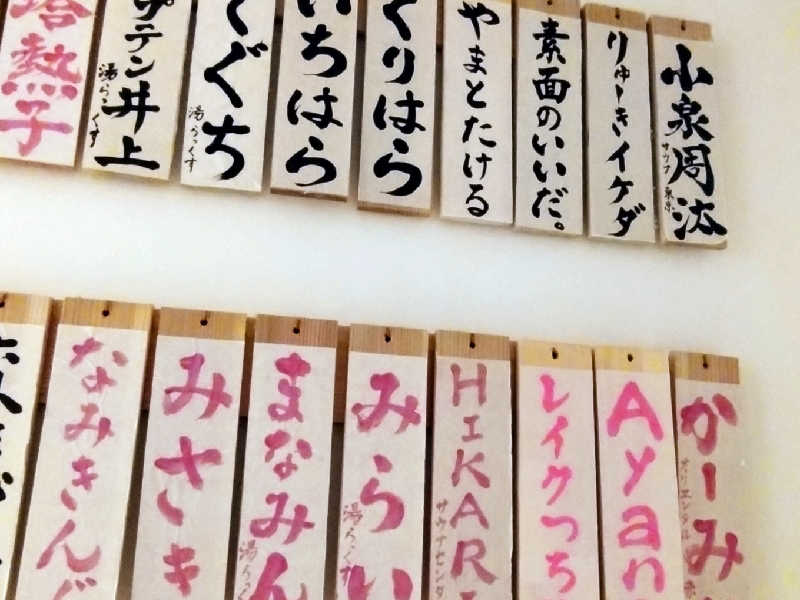 小泉周汰
サウナ東京
りゅーきイケダ
素面のいいだ。
やまとたける
くりはら
いちはら
くぐち
湯らっくす
プテン井上
湯らっくす
熱子
かーみ
オリエンタル
Ayan
レイクっち
HIKARI
サウナセンタ
みらい
湯らっくす
まなみん
湯らっく
みさき
なみきんぐ